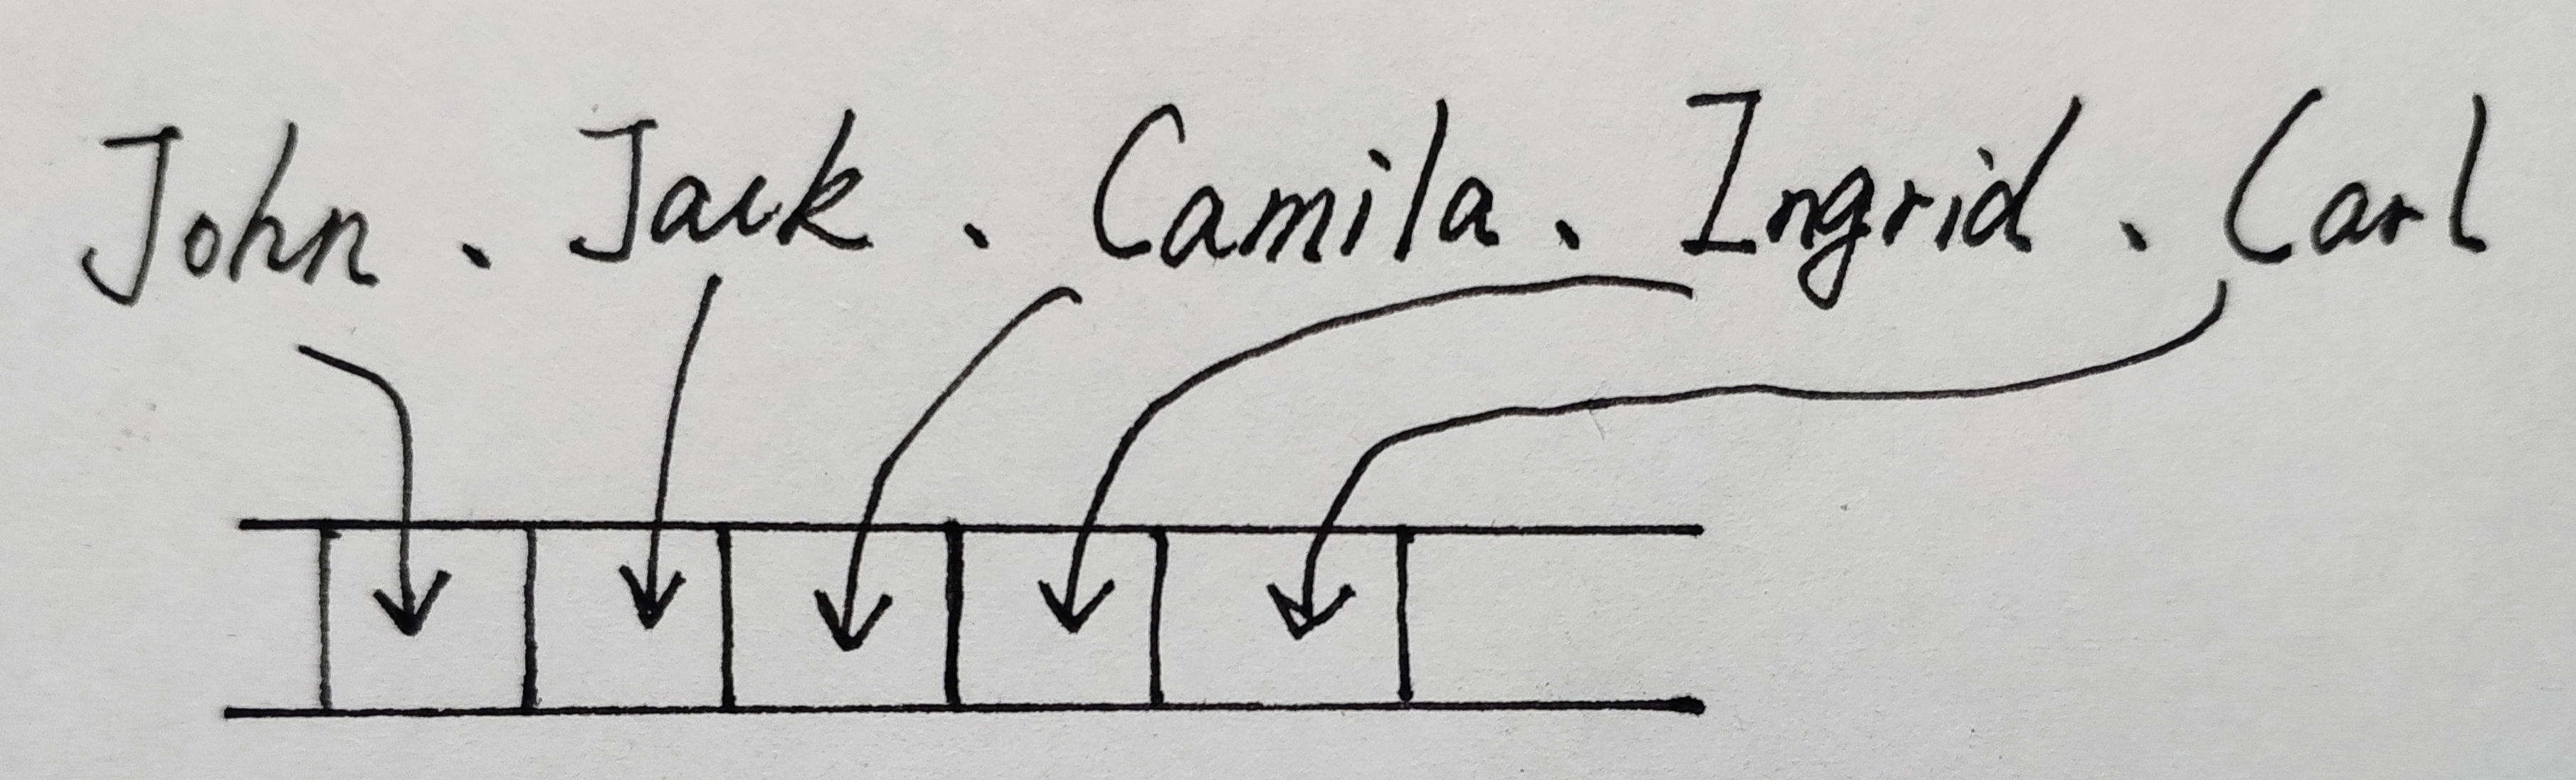 John、Jack、Camila、Ingrid、Carl